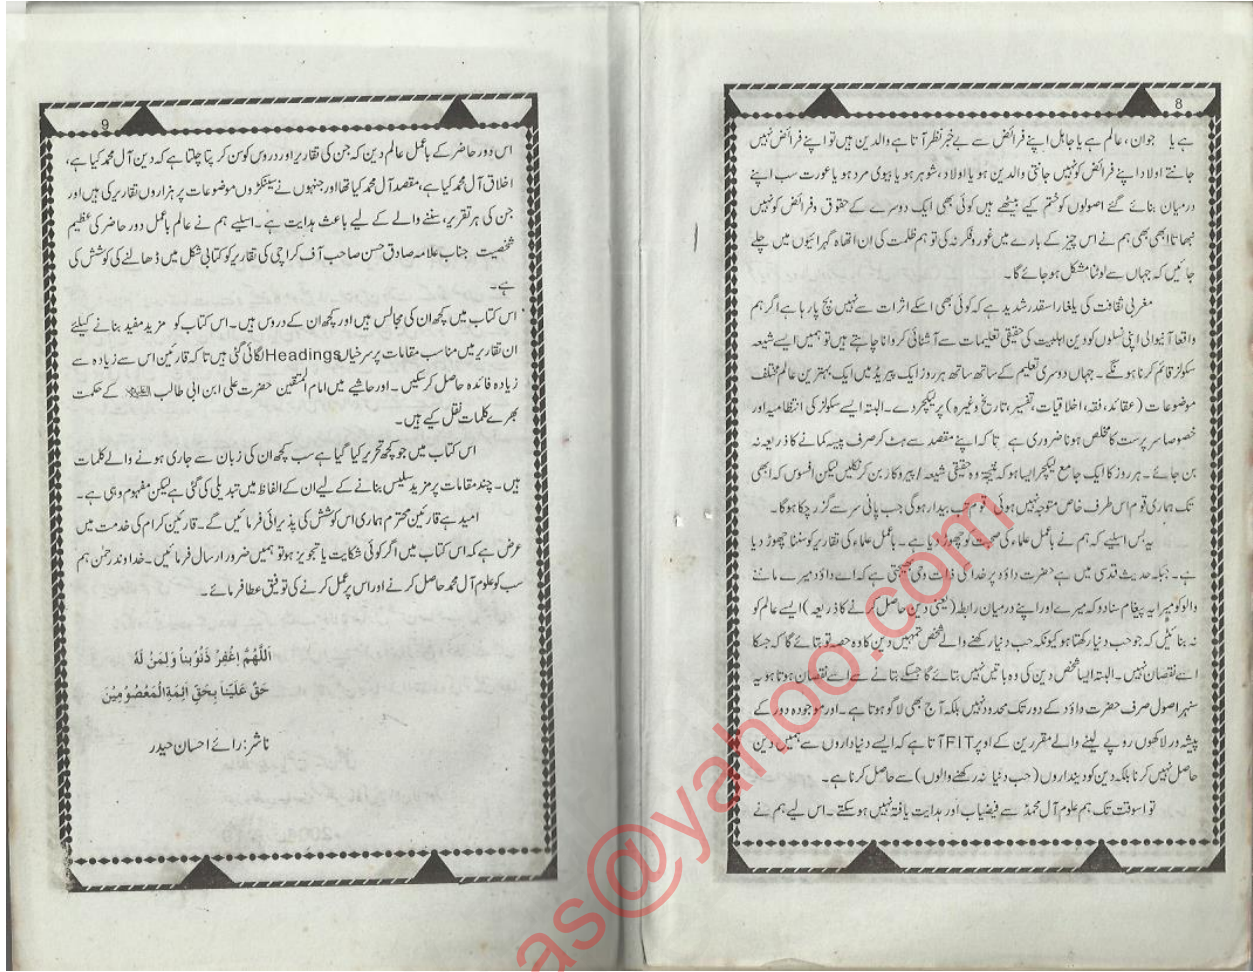 8
ہے یا جوان، عالم ہے یا جاہل اپنے فرائض سے بے خبر نظر آتا ہے والدین ہیں تو اپنے فرائض نہیں
جانتے اولاد اپنے فرائض کو نہیں جانتی والدین ہو یا اولاد، شوہر ہو یا بیوی مرد ہو یا عورت سب اپنے
درمیان بنائے گئے اصولوں کو ختم کیے بیٹھے ہیں کوئی بھی ایک دوسرے کے حقوق و فرائض کو نہیں
نبھاتا ابھی بھی ہم نے اس چیز کے بارے میں غور و فکر نہ کی تو ہم ظلمت کی ان اتھاہ گہرائیوں میں چلے
جائیں کہ جہاں سے لوٹنا مشکل ہو جائے گا۔
مغربی ثقافت کی یلغار اسقدر شدید ہے کہ کوئی بھی اسکے اثرات سے نہیں بچ پا رہا ہے اگر ہم
واقعا آنیوالی اپنی نسلوں کو دین اہلبیت کی حقیقی تعلیمات سے آشنائی کروانا چاہتے ہیں تو ہمیں ایسے شیعہ
سکولز قائم کرنا ہونگے۔ جہاں دوسری تعلیم کے ساتھ ساتھ ہر روز ایک پیریڈ میں ایک بہترین عالم مختلف
موضوعات (عقائد، فقہ، اخلاقیات، تفسیر، تاریخ وغیرہ) پر لیکچر دے۔ البتہ ایسے سکولز کی انتظامیہ اور
خصوصا سرپرست کا مخلص ہونا ضروری ہے تا کہ اپنے مقصد سے ہٹ کر صرف پیسہ کمانے کا ذریعہ نہ
بن جائے۔ ہر روز کا ایک جامع لیکچر ایسا ہو کہ نتیجۃ وہ حقیقی شیعہ / پیروکار بن کر نکلیں لیکن افسوس کہ ابھی
تک ہماری قوم اس طرف خاص متوجہ نہیں ہوئی قوم تب بیدار ہوگی جب پانی سر سے گزر چکا ہوگا۔
یہ بس اسلیے کہ ہم نے باعمل علماء کی صحبت کو چھوڑ دیا ہے۔ باعمل علماء کی تقاریر کو سننا چھوڑ دیا
ہے۔ جبکہ حدیث قدسی میں ہے حضرت داؤد پر خدا کی ذات وحی بھیجتی ہے کہ اے داؤد میرے ماننے
والوکو میرا یہ پیغام سنا دو کہ میرے اور اپنے درمیان رابطہ (یعنی دین حاصل کرنے کا ذریعہ) ایسے عالم کو
نہ بنائیں کہ جو حب دنیا رکھتا ہو کیونکہ حب دنیا رکھنے والے شخص تمہیں دین کا وہ حصہ تو بتائے گا کہ جسکا
اسے نقصان نہیں۔ البتہ ایسا شخص دین کی وہ باتیں نہیں بتائے گا جسکے بتانے سے اسے نقصان ہوتا ہو یہ
سنہرا صول صرف حضرت داؤد کے دور تک محدود نہیں بلکہ آج بھی لاگو ہوتا ہے۔ اور موجودہ دور کے
پیشہ ور لاکھوں روپے لینے والے مقررین کے اوپر FIT آتا ہے کہ ایسے دنیا داروں سے ہمیں دین
حاصل نہیں کرنا بلکہ دین کو دینداروں (حب دنیا نہ رکھنے والوں) سے حاصل کرنا ہے۔
تو اسوقت تک ہم علوم آل محمدؐ سے فیضیاب اور ہدایت یافتہ نہیں ہو سکتے۔ اس لیے ہم نے
9
اس دور حاضر کے باعمل عالم دین کہ جن کی تقاریر اور دروس کو سن کر پتا چلتا ہے کہ دین آل محمد کیا ہے،
اخلاق آل محمد کیا ہے، مقصد آل محمد کیا تھا اور جنہوں نے سینکڑوں موضوعات پر ہزاروں تقاریر کی ہیں اور
جن کی ہر تقریر، سننے والے کے لیے باعث ہدایت ہے۔ اسلیے ہم نے عالم باعمل دور حاضر کی عظیم
شخصیت جناب علامہ صادق حسن صاحب آف کراچی کی تقاریر کو کتابی شکل میں ڈھالنے کی کوشش کی
ہے۔
اس کتاب میں کچھ ان کی مجالس ہیں اور کچھ ان کے دروس ہیں۔ اس کتاب کو مزید مفید بنانے کیلئے
ان تقاریر میں مناسب مقامات پر سرخیاں Headings لگائی گئی ہیں تا کہ قارئین اس سے زیادہ سے
زیادہ فائدہ حاصل کر سکیں۔ اور حاشیے میں امام المتقین حضرت علی ابن ابی طالب کے حکمت
بھرے کلمات نقل کیے ہیں۔
اس کتاب میں جو کچھ تحریر کیا گیا ہے سب کچھ ان کی زبان سے جاری ہونے والے کلمات
ہیں۔ چند مقامات پر مزید سلیس بنانے کے لیے ان کے الفاظ میں تبدیلی کی گئی ہے لیکن مفہوم وہی ہے۔
امید ہے قارئین محترم ہماری اس کوشش کی پذیرائی فرمائیں گے۔ قارئین کرام کی خدمت میں
عرض ہے کہ اس کتاب میں اگر کوئی شکایت یا تجویز ہو تو ہمیں ضرور ارسال فرمائیں۔ خداوند رحمٰن ہم
سب کو علوم آل محمد حاصل کرنے اور اس پر عمل کرنے کی توفیق عطا فرمائے۔
اَللّٰهُمَّ اِغْفِرْ ذُنُوْبِنَا وَلِمَنْ لَهُ
حَقٌّ عَلَيْنَا بِحَقِّ اَئِمَةِ الْمَعْصُوْمِيْنَ
ناشر: رائے احسان حیدر
as@yahoo.com